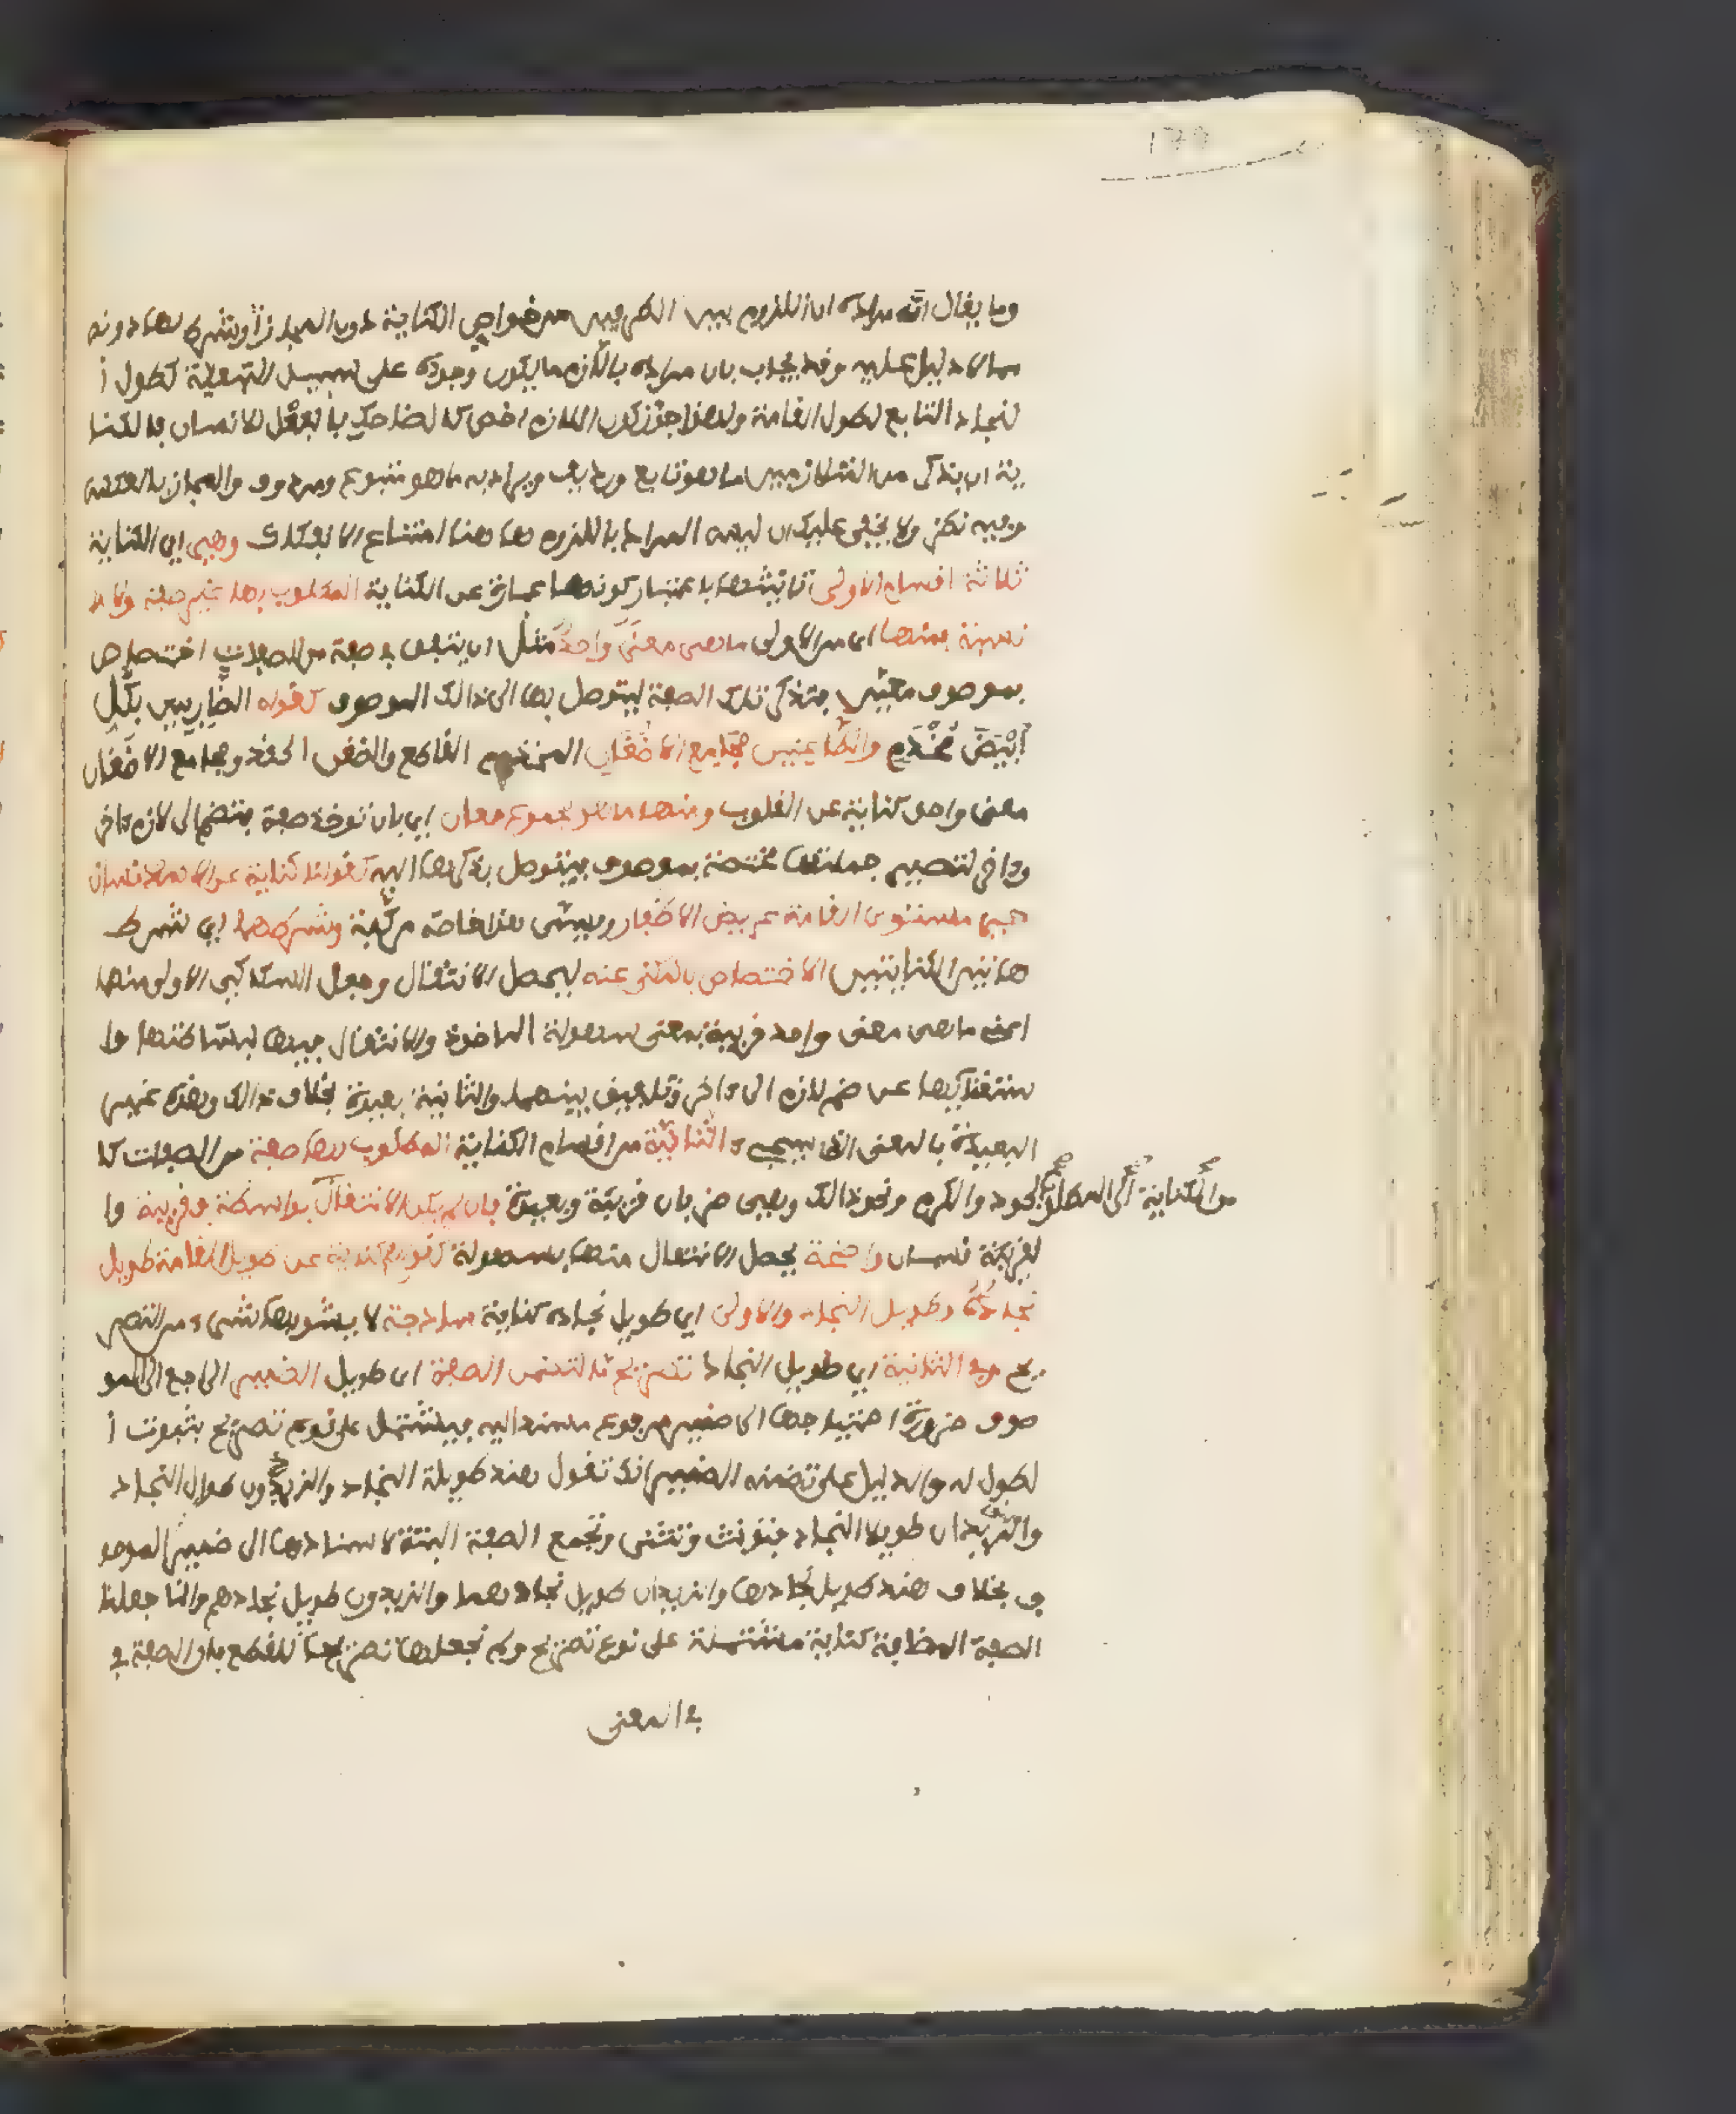 وما يقال انه مراده ان اللزوم بين الطرفين من خواص الكناية دون المجاز او شرط لها دونه
مما لا دليل عليه وقد يجاب بان مراده باللازم ما يكون وجوده على سبيل التبعية كطول ا
لنجاد التابع لطول القامة ولهذا جوز كون اللازم اخص كالضاحك بالفعل للانسان فالكنا
ية ان يذكر من المتلازمين ما هو تابع ورديف ويراد به ما هو متبوع ومردوف والمجاز بالعكس
وفيه نظر ولا يخفى عليك ان ليس المراد باللزوم ها هنا امتناع الانفكاك وهي اي الكناية
ثلاثة اقسام الاولى تانيثها باعتبار كونها عبارة عن الكناية المطلوب بها غير صفة ولا
نسبة فمنها اي من الاولى ما هي معنى واحد مثل ان يتفق في صفة من الصفات اختصاص
بموصوف معين فتذكر تلك الصفة ليتوصل بها الى ذالك الموصوف كقوله الضاربين بكل
ابيض مخذم والطاعنين مجامع الاضغان المخذم القاطع والضغن الحقد ومجامع الاضغان
معنى واحد كناية عن القلوب ومنها ما هو مجموع معان اي بان توخذ صفة فتضم الى لازم ءاخر
وءاخر لتصير جملتها مختصة بموصوف فيتوصل بذكرها اليه كقولنا كناية عن الانسان
حي مستوى القامة عريض الاظفار ويسمى هذا خاصة مركبة وشرطهما اي شرط
هاتين الكنايتين الاختصاص بالمكنى عنه ليحصل الانتقال وجعل السكاكي الاولى منها
اعنى ما هي معنى واحد قريبة بمعنى سهولة الماخذ والانتقال فيها لبساطتها وا
ستغنائها عن ضم لازم الى ءاخر وتلفيق بينهما والثانية بعيدة بخلاف ذالك وهذه غير
البعيدة بالمعنى الذي سيجيء والثانية من اقسام الكناية المطلوب بها صفة من الصفات كا
لجود والكرم ونحو ذالك وهي ضربان قريبة وبعيدة فان لم يكن الانتقال بواسطة فقريبة وا
من الكناية الى المطلوب
لقريبة قسمان واضحة يحصل الانتقال منها بسهولة كقولهم كناية عن طويل القامة طويل
نجاده وطويل النجاد والاولى اي طويل نجاده كناية ساذجة لا يشوبها شيء من التصر
يح وفي الثانية اي طويل النجاد تصريح ما لتضمن الصفة اي طويل الضمير الراجع الى المو
صوف ضرورة احتياجها الى ضمير مرفوع مسند اليه فيشتمل على نوع تصريح بثبوت ا
لطول له والدليل على تضمنه الضمير انك تقول هند طويلة النجاد والزيدون طوال النجاد
والزيدان طويلا النجاد فتونث وتثنى وتجمع الصفة البتة لاسنادها الى ضمير الموصو
ف بخلاف هند طويل نجادها والزيدان طويل نجادهما والزيدون طويل نجادهم وانما جعلنا
الصفة المضافة كناية مشتملة على نوع تصريح ولم نجعلها تصريحا للقطع بان الصفة في
في المعنى